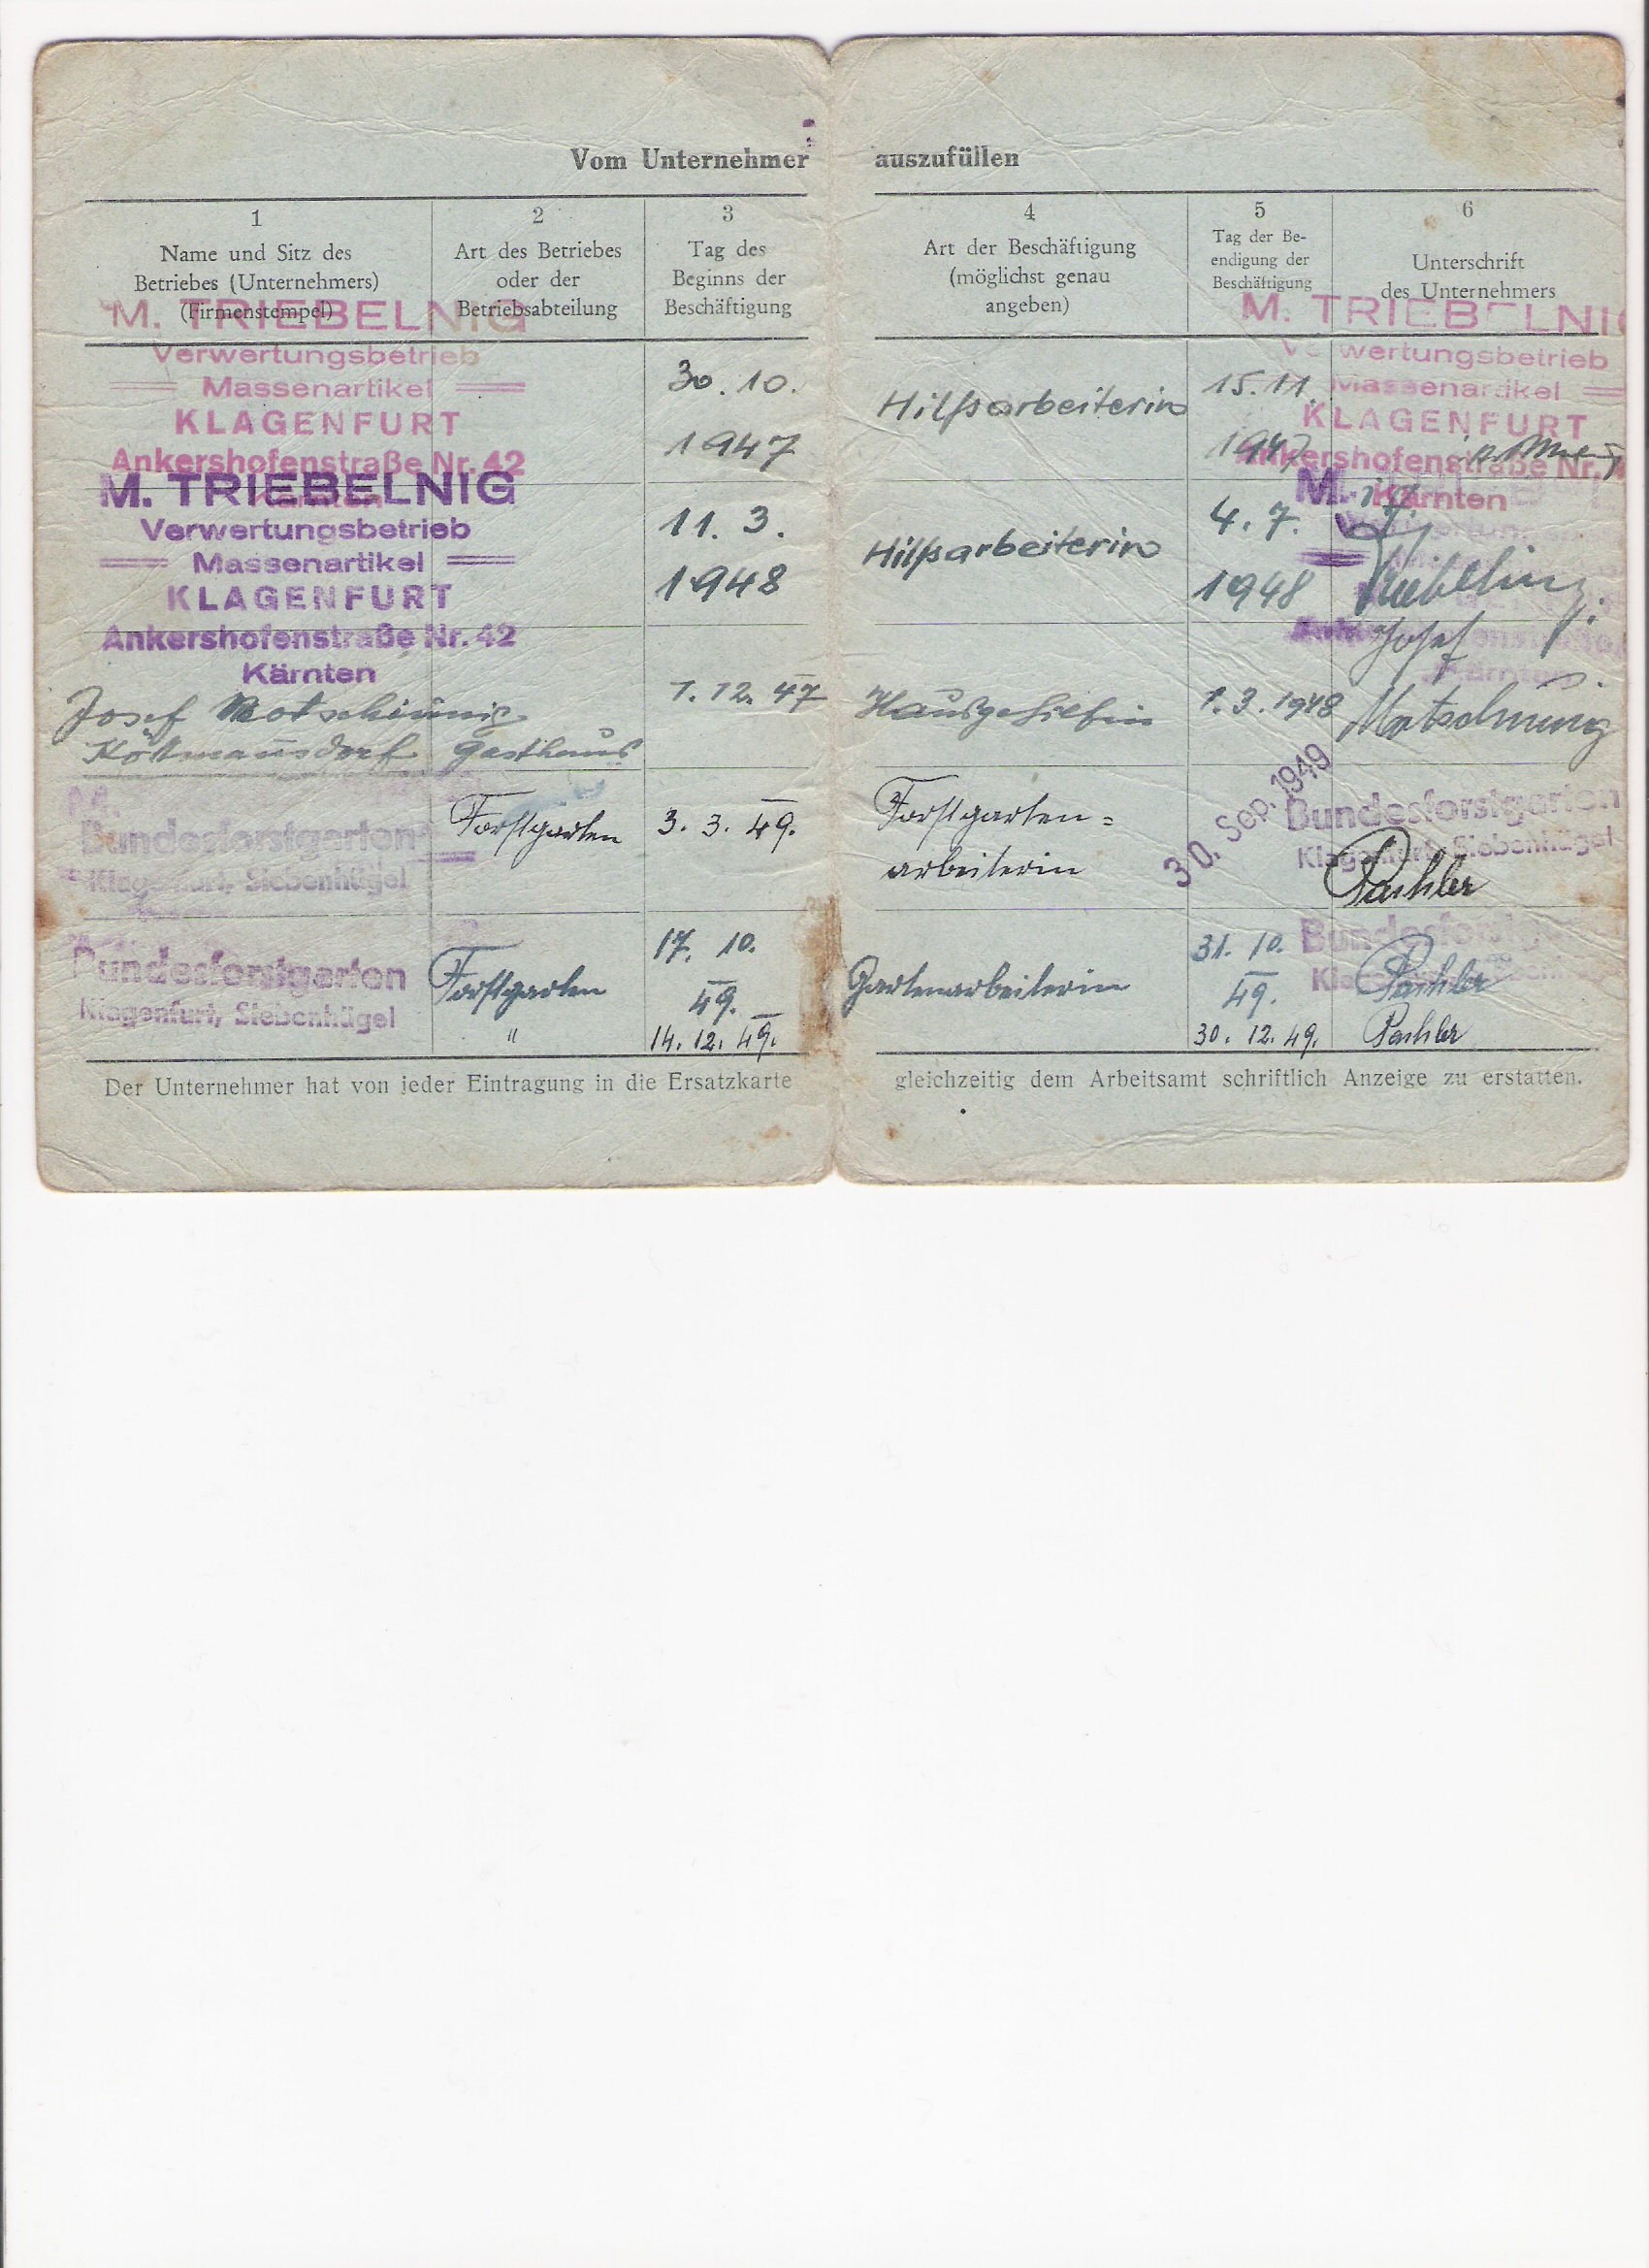 Vom Unternehmer auszufüllen
1
Name und Sitz des
Betriebes (Unternehmers)
(Firmenstempel)
2
Art des Betriebes
oder der
Betriebsabteilung
3
Tag des
Beginns der
Beschäftigung
4
Art der Beschäftigung
(möglichst genau
angeben)
5
Tag der Be-
endigung der
Beschäftigung
6
Unterschrift
des Unternehmers
M. TRIEBELNIG
Verwertungsbetrieb
Massenartikel
KLAGENFURT
Ankershofenstraße Nr. 42
Kärnten
30. 10.
1947
Hilfsarbeiterin
15. 11.
1947
M. TRIEBELNIG
Verwertungsbetrieb
Massenartikel
KLAGENFURT
Ankershofenstraße Nr.
Kärnten
M. TRIEBELNIG
Verwertungsbetrieb
Massenartikel
KLAGENFURT
Ankershofenstraße Nr. 42
Kärnten
11. 3.
1948
Hilfsarbeiterin
4. 7.
1948
M.
Kärnten
Josef
Köttmannsdorf
Gasthaus
1. 12. 47
Hausgehilfin
1. 3. 1948
Josef
Bundesforstgarten
Klagenfurt, Siebenhügel
Forstgarten
3. 3. 49.
Forstgarten=
arbeiterin
30. Sep. 1949
Bundesforstgarten
Klagenfurt, Siebenhügel
Pachler
Bundesforstgarten
Klagenfurt, Siebenhügel
Forstgarten
17. 10.
49.
Gartenarbeiterin
31. 10.
49.
Pachler
"
14. 12. 49.
30. 12. 49.
Pachler
Der Unternehmer hat von jeder Eintragung in die Ersatzkarte gleichzeitig dem Arbeitsamt schriftlich Anzeige zu erstatten.